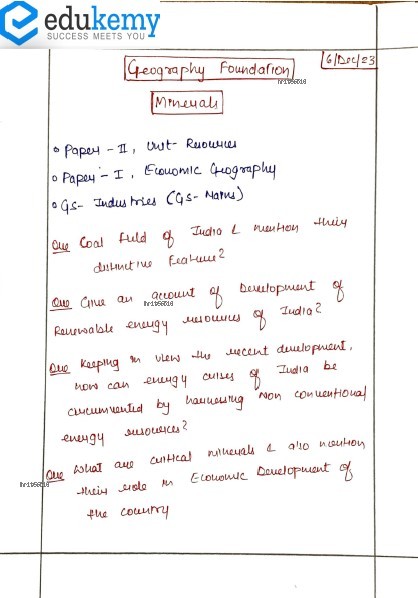 edukemy
SUCCESS MEETS YOU
6/Dec/23
Geography Foundation
Minerals
o Paper - II, Unit- Resources
o Paper - I, Economic Geography
o GS- Industries (GS- Mains)
Que Coal field of India & mention their
distinctive feature?
Que Give an account of Development of
Renewable energy resources of India?
Que Keeping in view the recent development,
how can energy crises of India be
circumvented by harnessing Non conventional
energy resources?
Que What are critical minerals & also mention
their role in Economic Development of
the country